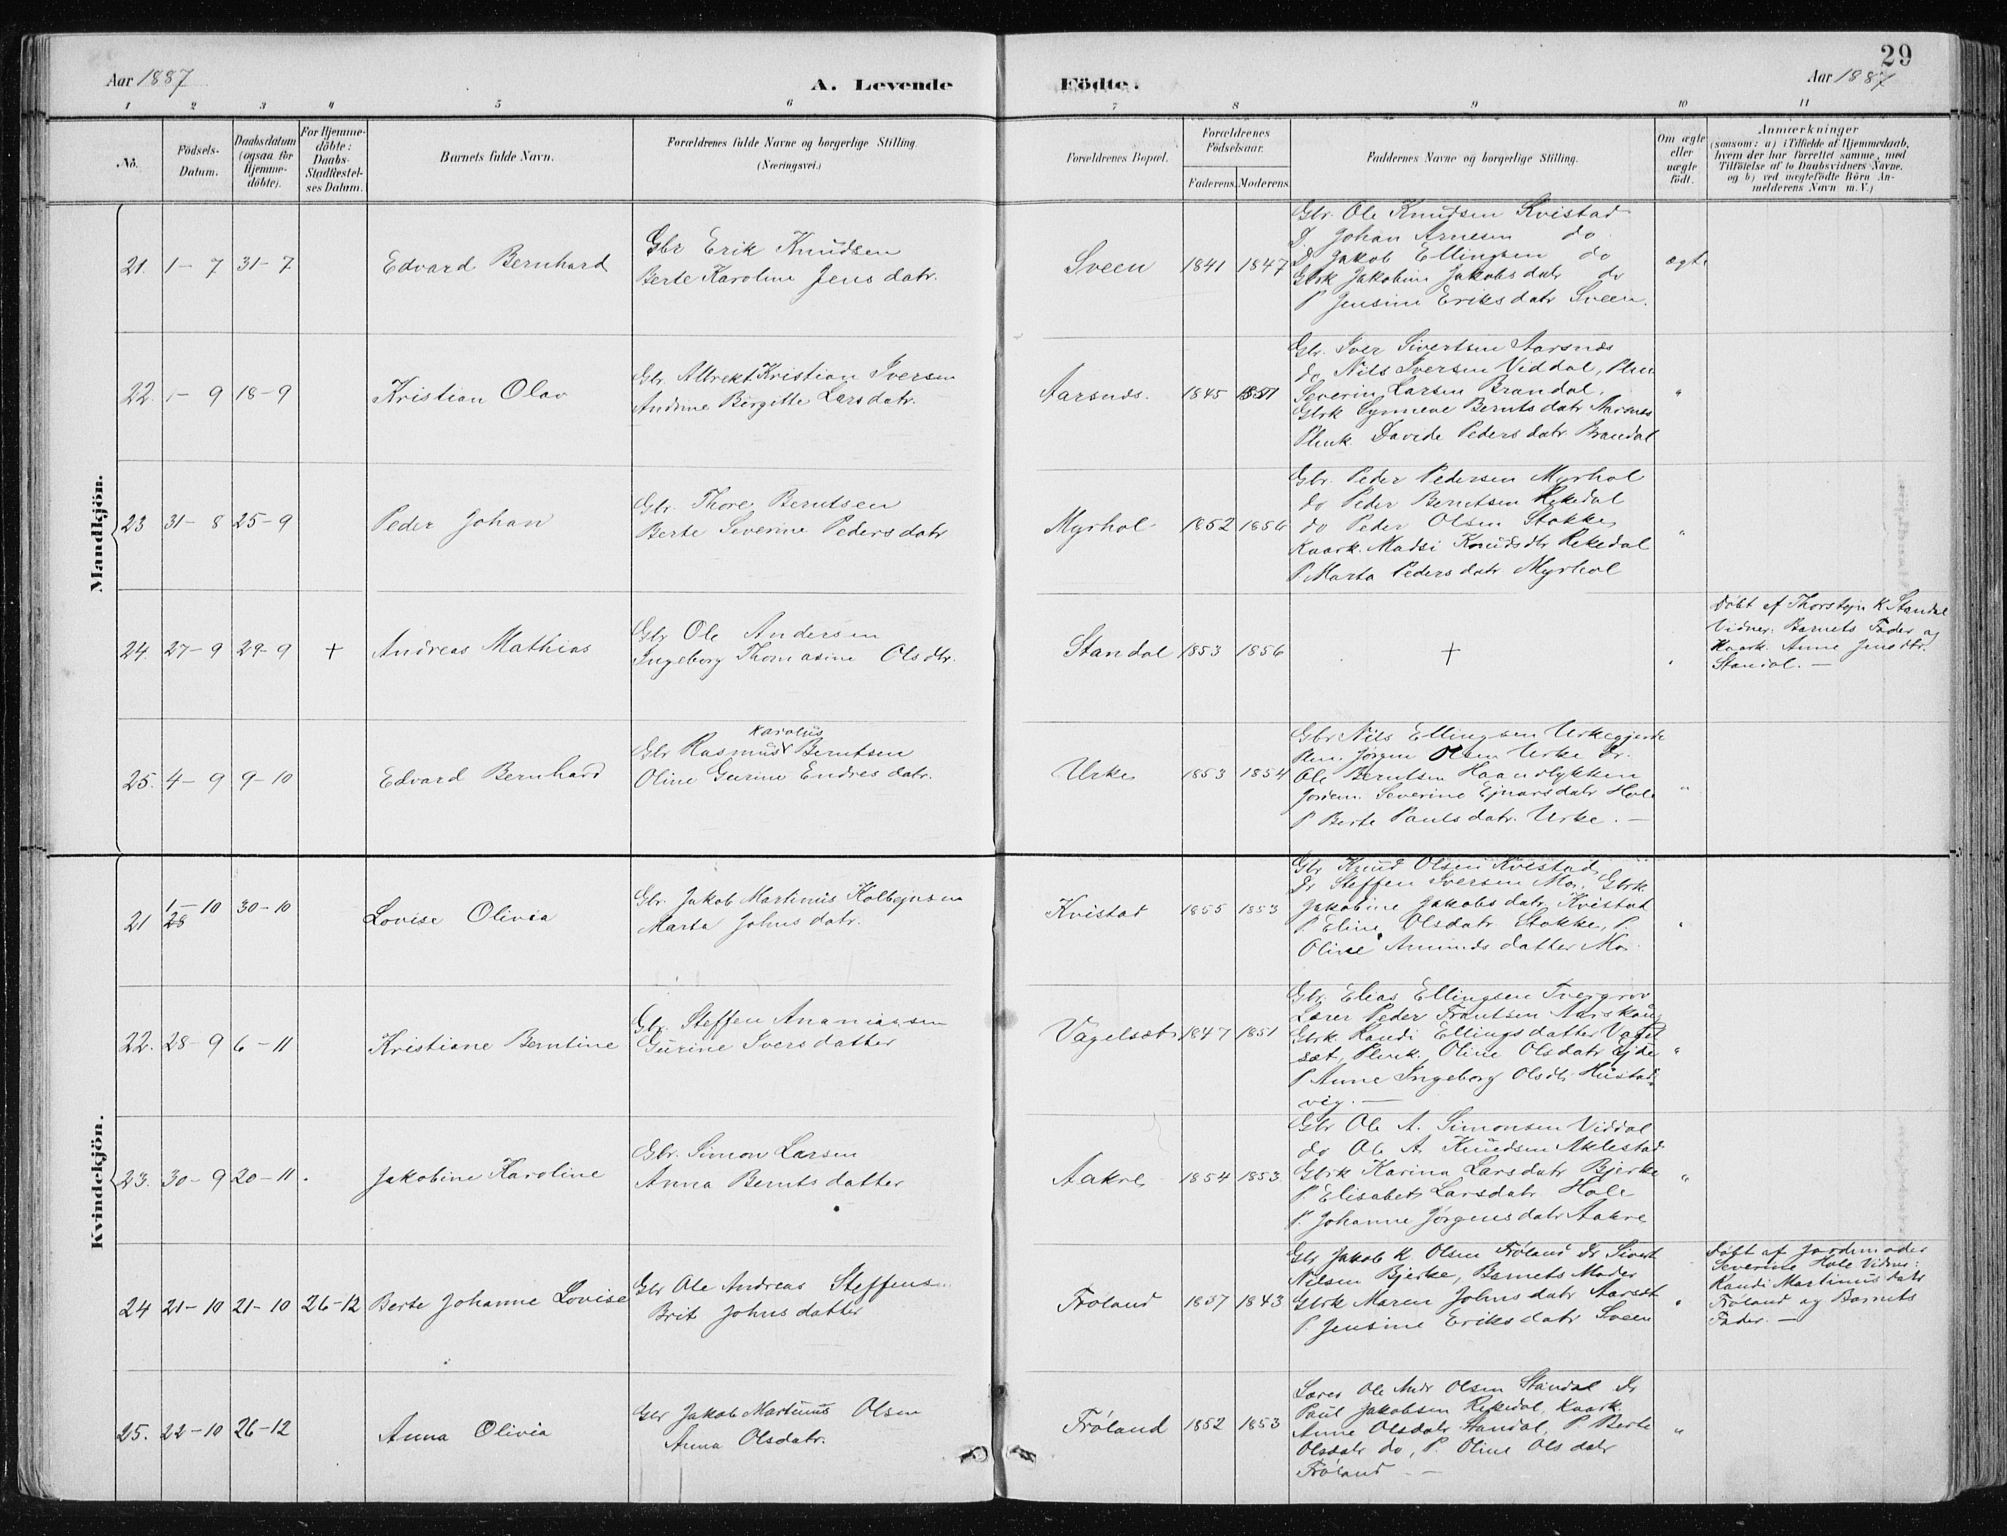 29
Aar 1887
A. Levende
Födte.
Aar 1887
1 2 3 4 5 6 7 8 9 10 11
No.
Födsels-Datum.
Daabsdatum (ogsaa for Hjemme-döbte).
For Hjemme-döbte: Daabs-Stadfæstel-ses Datum.
Barnets fulde Navn.
Forældrenes fulde Navne og borgerlige Stilling (Næringsvei.)
Forældrenes Bopæl.
Forældrenes Födselsaar.
Faderens. Moderens.
Faddernes Navne og borgerlige Stilling.
Om ægte eller uægte födt.
Anmærkninger
(saasom: a) i Tilfælde af Hjemmedaab,
hvem der har forrettet samme, med
Tilföielse af to Daabsvidners Navne.
og b) ved uægtefödte Börn An-
melderens Navn m. V.)
Mandkjön.
21. 1-7 31-7 Edvard Bernhard
Gbr Erik Knudsen
Berte Karoline Jensdatr.
Sveen 1841 1847
Gbr. Ole Knudsen Kvistad
D. Johan Arnesen do
D Jakob Ellingsen do
Gbrk Jakobine Jakobsdatr do
P Jensine Eriksdatr Sveen.
ægte
22. 1-9 18-9 Kristian Olav
Gbr. Albrekt Kristian Iversen
Andrine Birgitte Larsdatr.
Aarsnæs. 1845 1851
Gbr. Iver Sivertsen Aarsnæs
do Nils Iversen Viddal, Plm
Severin Larsen Brandal,
Gbrk Synneve Berntsdatr Aarsnes
Plmk Davide Pedersdatr Brandal
"
23 31-8 25-9 Peder Johan
Gbr. Thore Berntsen
Berte Severine Pedersdatr
Myrhol 1852 1856
Gbr. Peder Pedersen Myrhol
do Peder Berntsen Rekedal
do Peder Olsen Stokke
Kaark. Madsi Knudsdtr Rekedal
P. Marta Pedersdatr Myrhol
"
24. 27-9 29-9 + Andreas Mathias
Gbr Ole Andersen
Ingeborg Thomasine Olsdtr.
Standal 1853 1856
+
"
Döbt af Thorstejn K. Standal
Vidner: Barnets Fader og
Kaark. Anne Jensdtr.
Standal. —
25. 4-9 9-10 Edvard Bernhard
Karolus
Gbr Rasmus Berntsen
Oline Gurine Endresdatr.
Urke 1853 1854
Gbr Nils Ellingsen Urkegjerde
Plm. Jørgen Olsen Urke Dr.
Ole Berntsen Haandlykken
Jordem. Severine Ejnarsdatr Hole
P Berte Paulsdatr. Urke. —
"
Kvindekjön.
21 1-10 28 30-10 Lovise Olivia
Gbr. Jakob Martinus Kolbejnsen
Marta Johnsdatr.
Kvistad 1855 1853
Gbr Knud Olsen Kvistad
Dr Steffen Iversen Mo. Gbrk
Jakobine Jakobsdatr Kvistad
P. Eline Olsdatr Stokke, P.
Oline Amundsdatter Mo.
"
22. 28-9 6-11 Kristiane Berntine
Gbr. Steffen Ananiassen
Gurine Iversdatter
Vagelsæt 1847 1851
Gbr. Elias Ellingsen Tvergrov
Lærer Peder Frantsen Aarskåug
Gbrk Randi Ellingsdatter Vagel
sæt, Plmk. Oline Olsdatr
P Anne Ingeborg Olsdtr Hustad
vig. —
"
23. 30-9 20-11 Jakobine Karoline
Gbr. Simon Larsen
Anna Berntsdatter
Aakre 1854 1853
Gbr Ole A. Simonsen Viddal
do Ole A. Knudsen Aklestad
Gbrk Karina Larsdatr Bjerke
P. Elisabet Larsdatr Hole
P. Johanne Jørgensdatr Aakre
"
24 21-10 21-10 26-12 Berte Johanne Lovise
Gbr Ole Andreas Steffensen
Brit Johnsdatter
Frøland 1857 1843
Gbr Jakob K. Olsen Frøland Dr Sivert
Nilsen Bjerke, Barnets Moder
Gbrk Maren Johnsdatr Aarsæt
P Jensine Eriksdatr Sveen
"
Døbt af Jordemoder
Severine Hole Vidner:
Randi Martinusdatr
Frøland og Barnets
Fader. —
25. 22-10 26-12 Anna Olivia
Gbr Jakob Martinus Olsen
Anna Olsdatr.
Frøland 1852 1853
Lærer Ole Andr Olsen Standal Dr
Paul Jakobsen Rekedal, Kaark.
Anne Olsdatr Standal, P. Berte
Olsdatr do, P. Oline Olsdatr
Frøland —
"